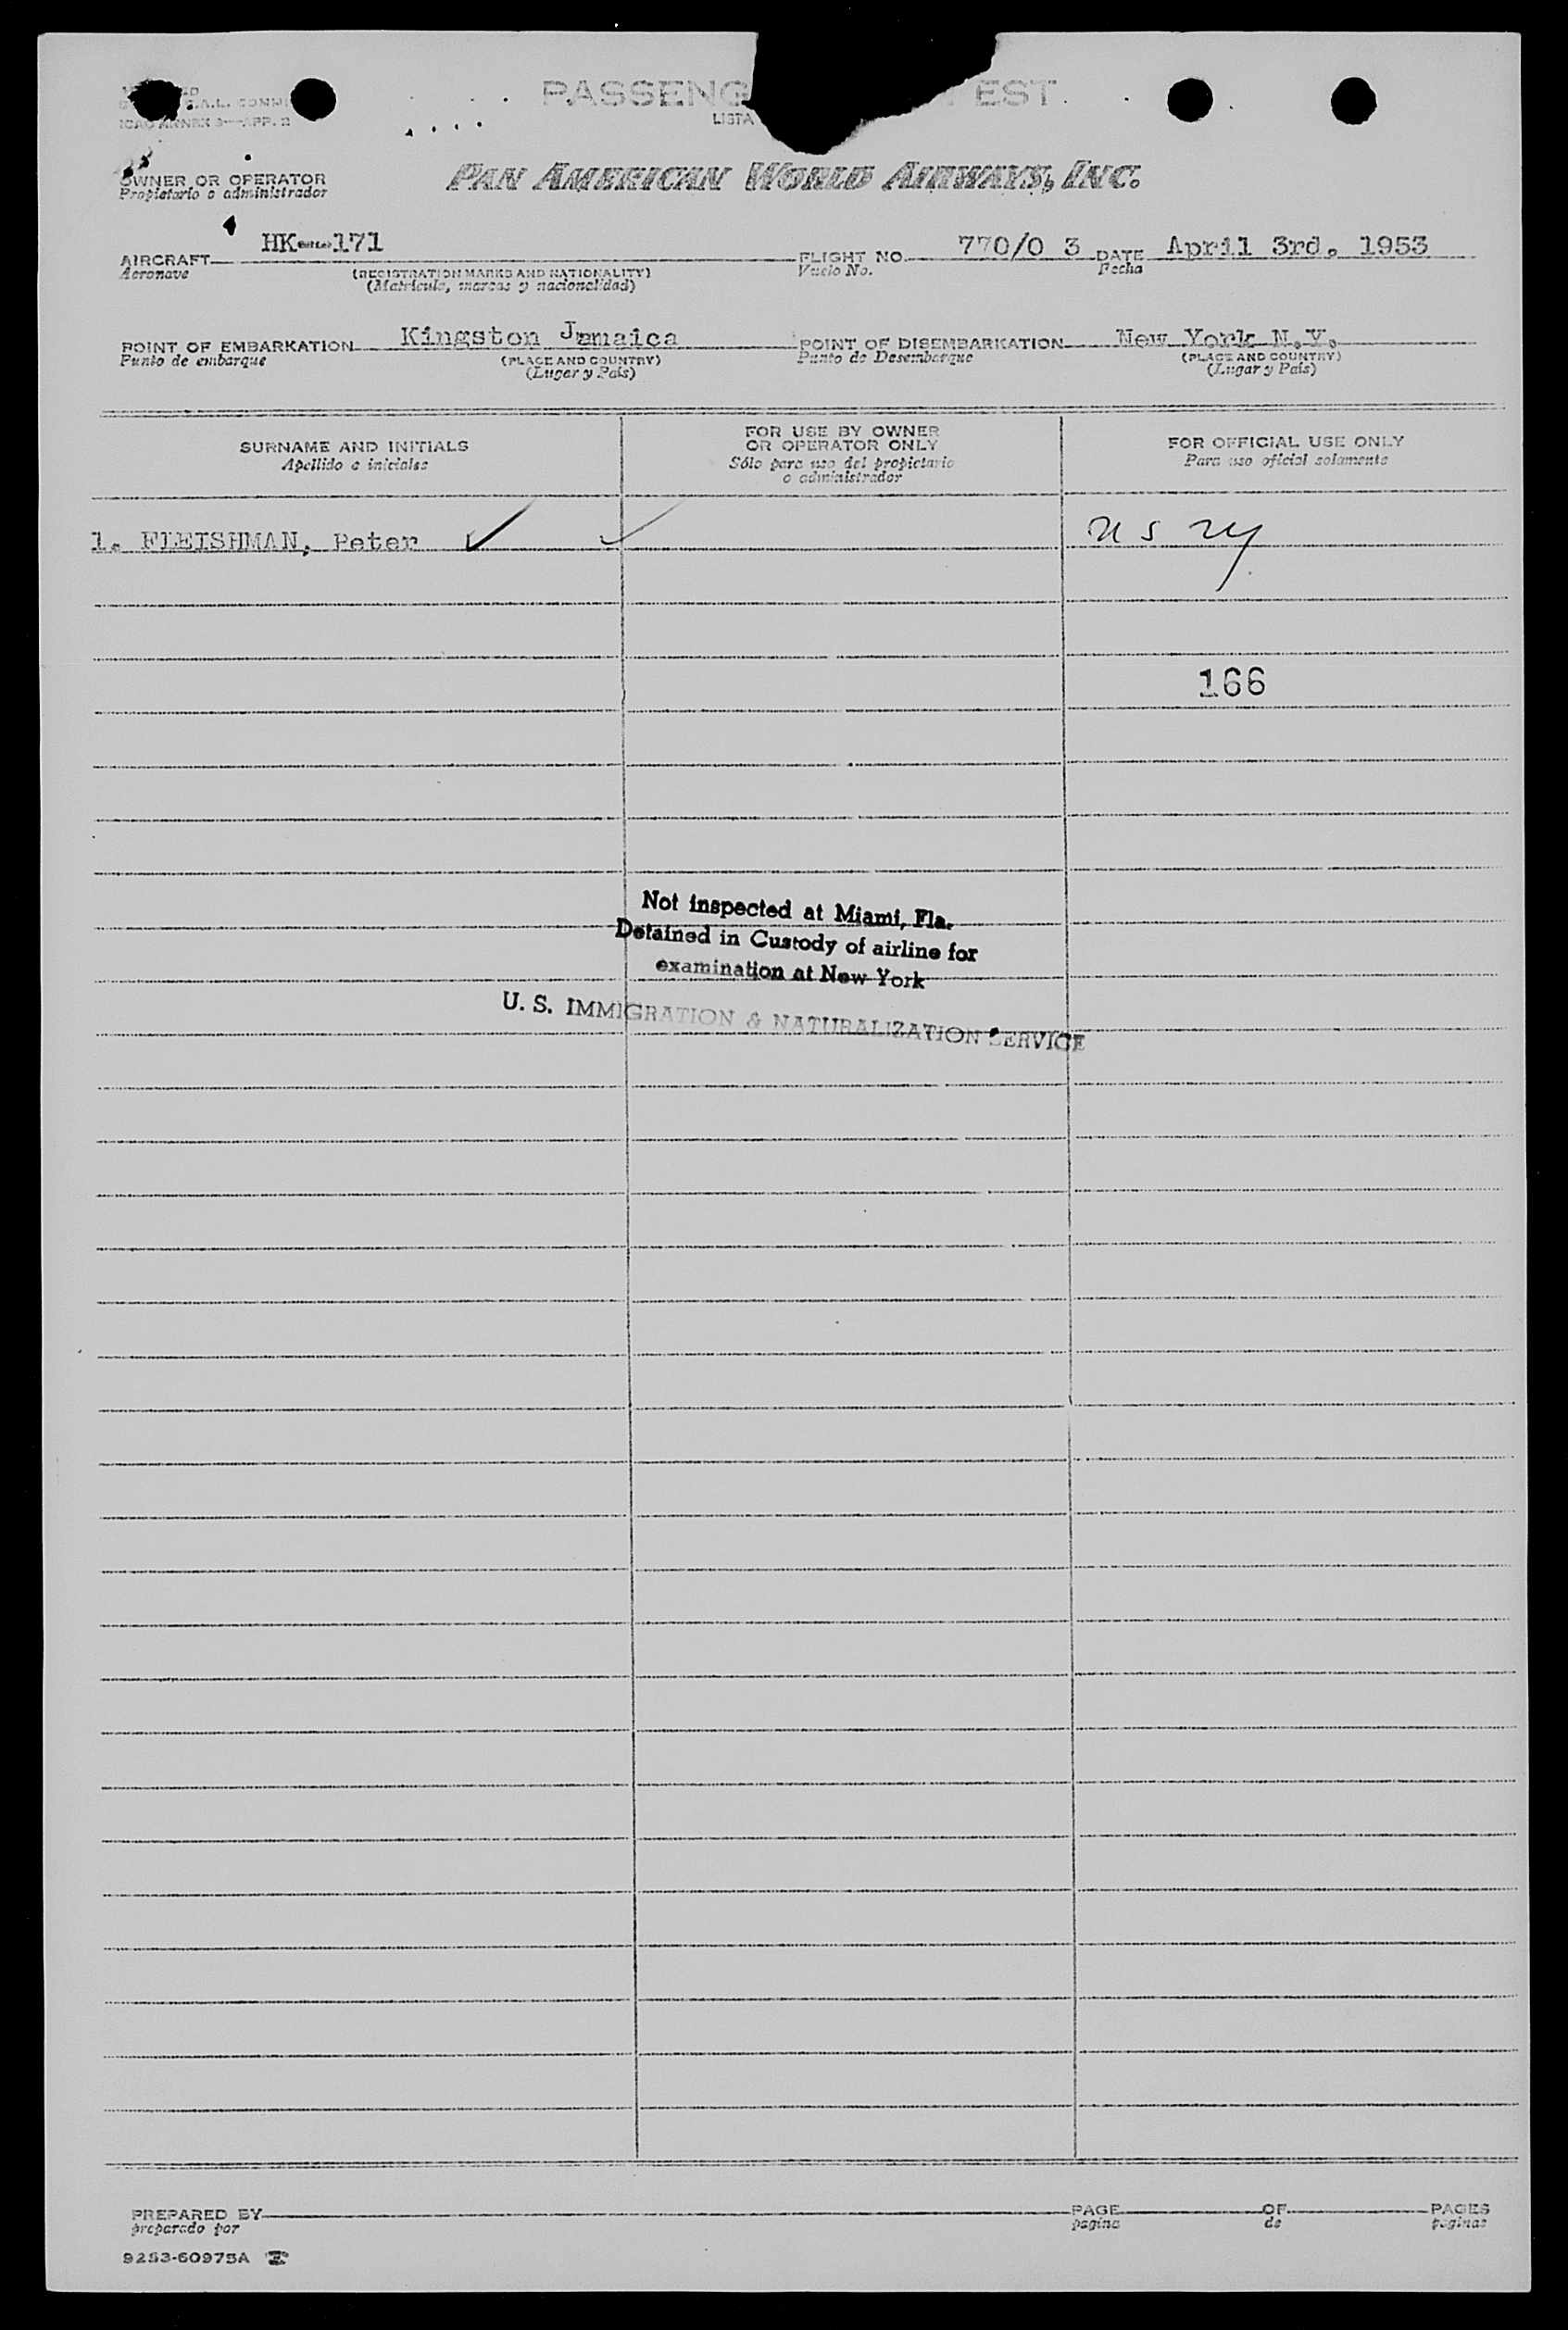 PASSENG EST
LISTA
ICAO ANNEX 9—APP. 2
OWNER OR OPERATOR PAN AMERICAN WORLD AIRWAYS, INC.
Propietario o administrador
AIRCRAFT HK 171 FLIGHT NO. 770/0 3 DATE April 3rd. 1953
Aeronave (REGISTRATION MARKS AND NATIONALITY) Vuelo No. Fecha
(Matrícula, marcas y nacionalidad)
POINT OF EMBARKATION Kingston Jamaica POINT OF DISEMBARKATION New York N.Y.
Punto de embarque (PLACE AND COUNTRY) Punto de Desembarque (PLACE AND COUNTRY)
(Lugar y País) (Lugar y País)
SURNAME AND INITIALS FOR USE BY OWNER OR OPERATOR ONLY FOR OFFICIAL USE ONLY
Apellido e iniciales Sólo para uso del propietario o administrador Para uso oficial solamente
1. FLEISHMAN, Peter
166
Not inspected at Miami, Fla.
Detained in Custody of airline for
examination at New York
U. S. IMMIGRATION & NATURALIZATION SERVICE
PREPARED BY PAGE OF PAGES
preparado por pagina de paginas
9253-60975A